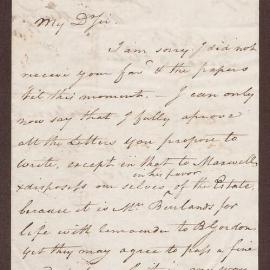 My Dr Sir.
I am sorry I did not
receive your favd & the papers
til this moment. – I can only
now say that I fully aprove
all the Letters you propose to
write, except in that to Maxwell
in his favor
dispose our selves of the Estate,
because it is Mrs Burlands for
life with remainder to B Gordon
yet they may agree to pass a fine